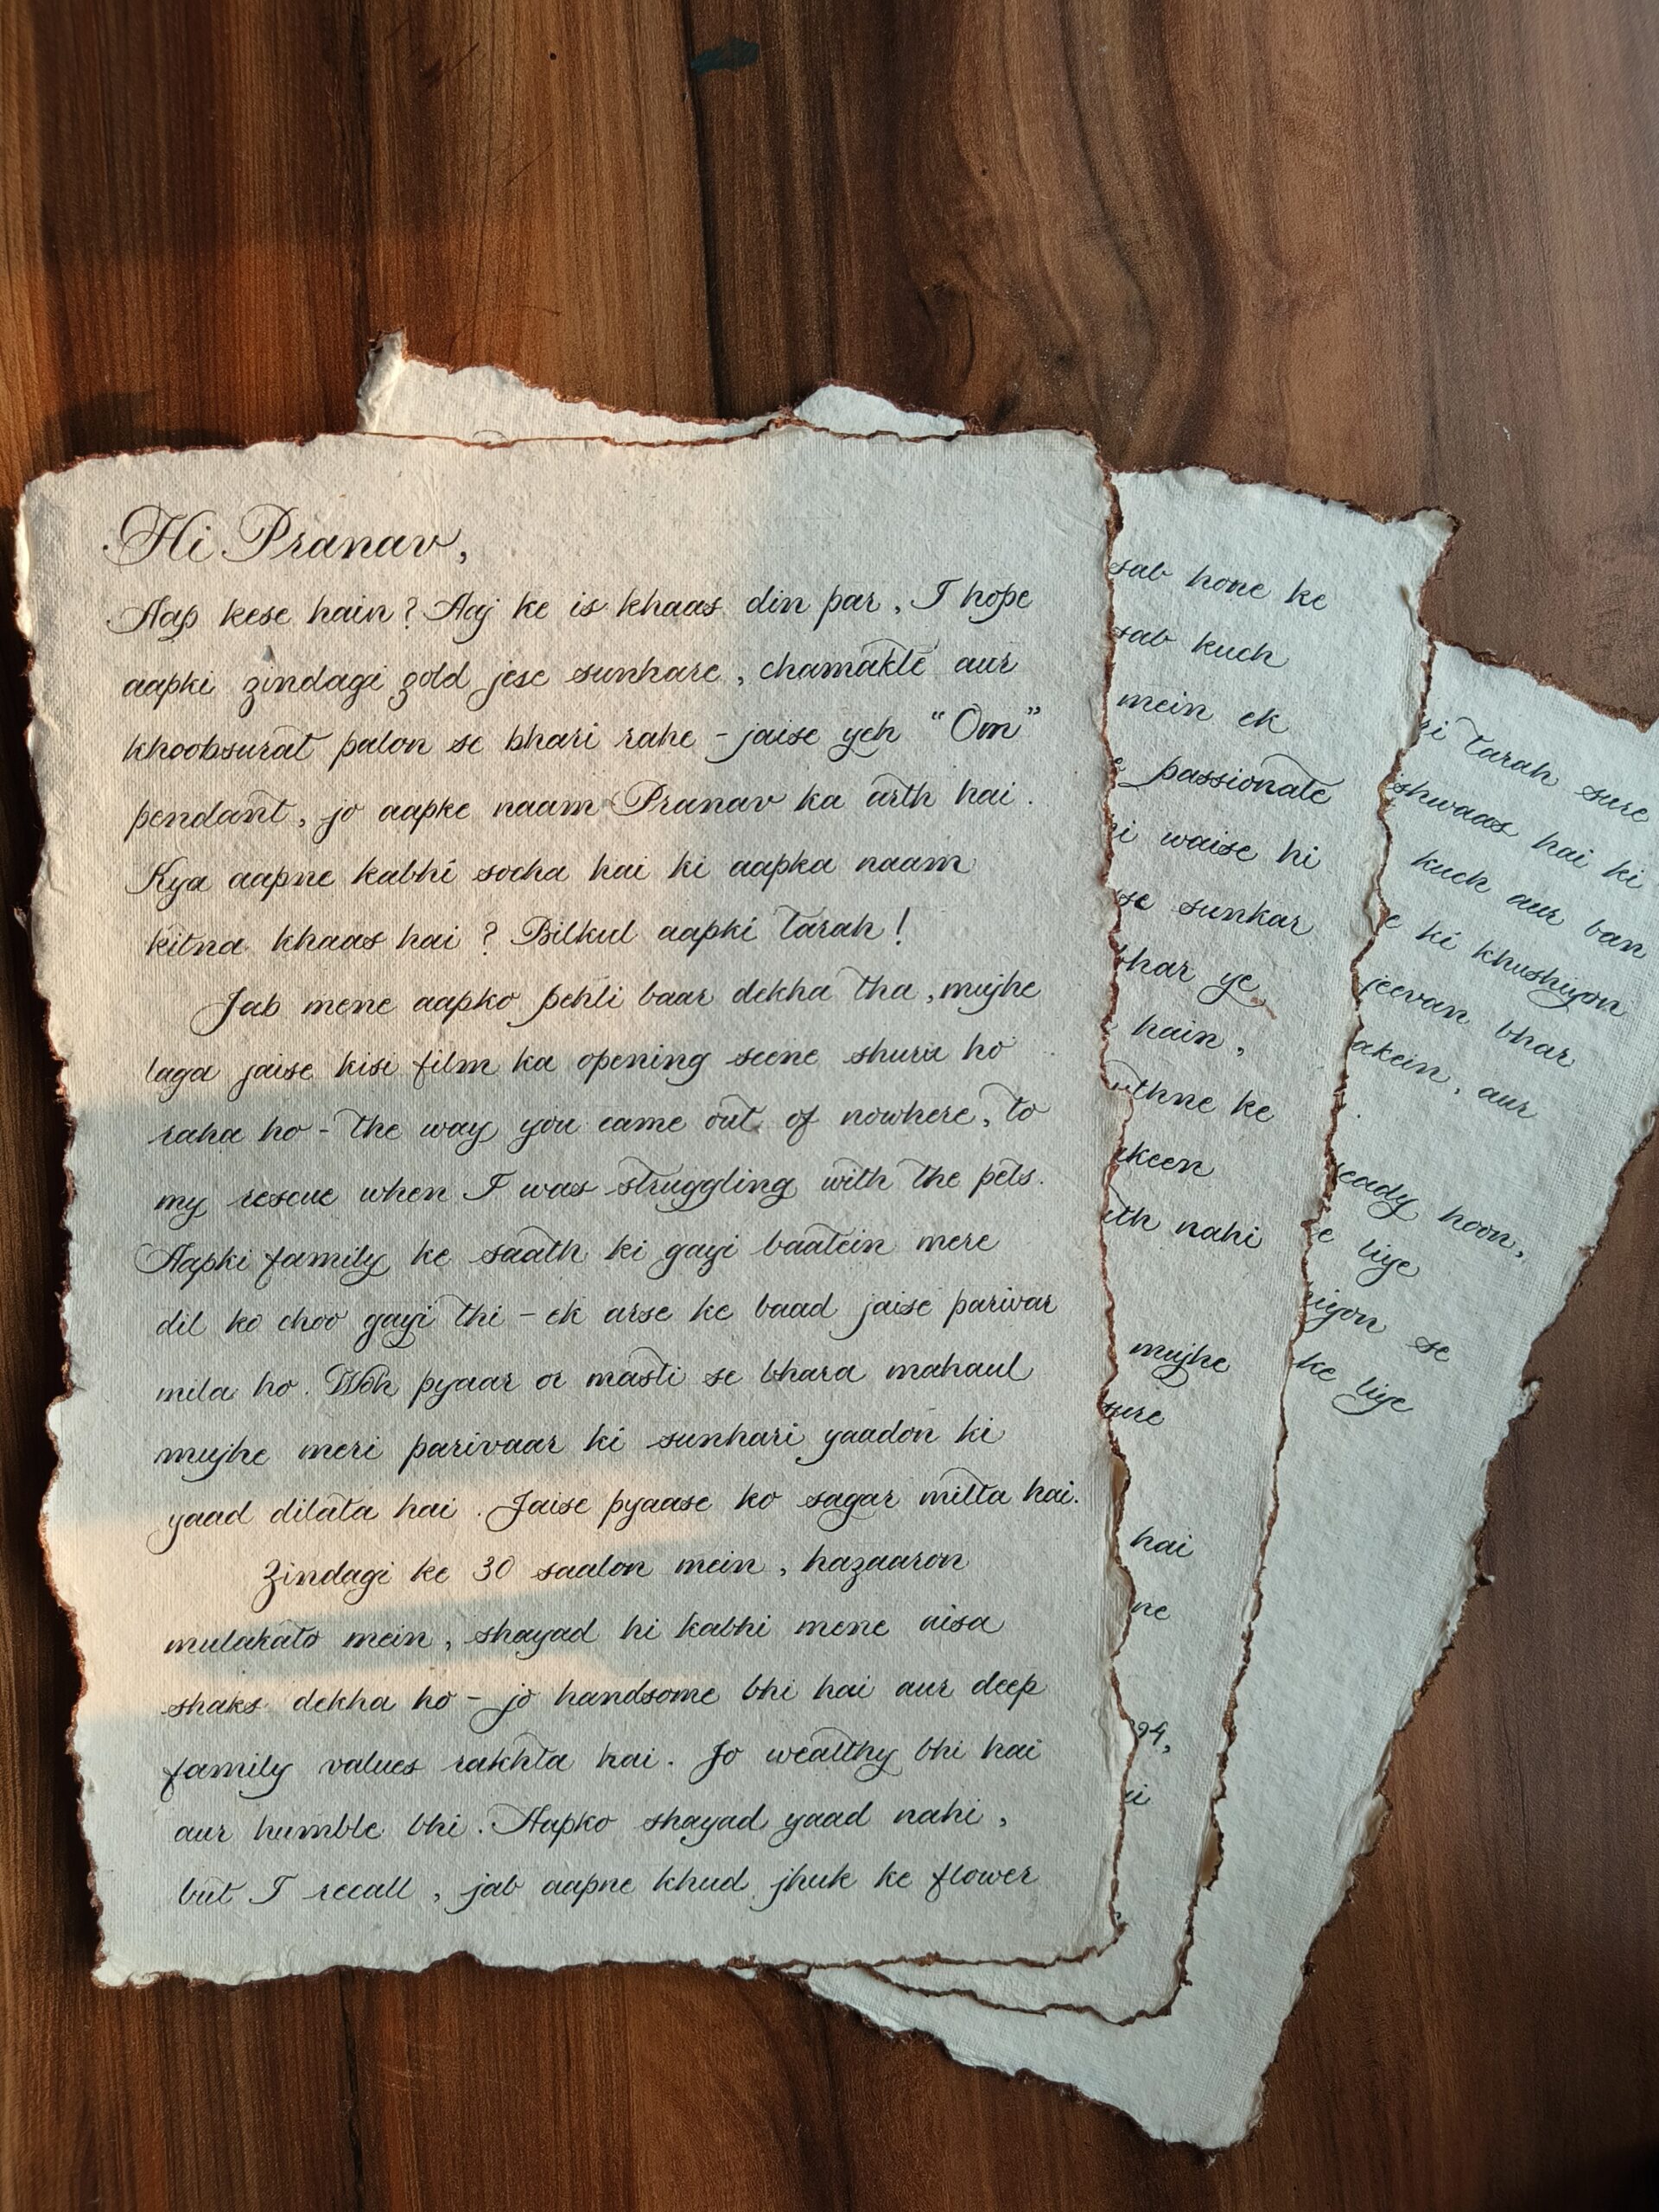 Hi Pranav,
Aap kese hain? Aaj ke is khaas din par, I hope
aapki zindagi gold jese sunhare, chamakte aur
khoobsurat palon se bhari rahe - jaise yeh "Om"
pendant, jo aapke naam Pranav ka arth hai.
Kya aapne kabhi socha hai ki aapka naam
kitna khaas hai? Bilkul aapki tarah!
Jab mene aapko pehli baar dekha tha, mujhe
laga jaise kisi film ka opening scene shuru ho
raha ho - the way you came out of nowhere, to
my rescue when I was struggling with the pets.
Aapki family ke saath ki gayi baatein mere
dil ko choo gayi thi - ek arse ke baad jaise parivar
mila ho. Woh pyaar or masti se bhara mahaul
mujhe meri parivaar ki sunhari yaadon ki
yaad dilata hai. Jaise pyaase ko sagar milta hai.
Zindagi ke 30 saalon mein, hazaaron
mulakato mein, shayad hi kabhi mene aisa
shaks dekha ho - jo handsome bhi hai aur deep
family values rakhta hai. Jo wealthy bhi hai
aur humble bhi. Aapko shayad yaad nahi,
but I recall, jab aapne khud jhuk ke flower
sab hone ke
sab kuch
mein ek
passionate
waise hi
se sunkar
bhar ye
hain,
uthne ke
akeen
ath nahi
mujhe
sure
hai
ne
94,
ri tarah sure
ishwaas hai ki
kuch aur ban
e ki khushiyon
jeevan bhar
akein, aur
ready hoon,
e liye
iyon se
ke liye